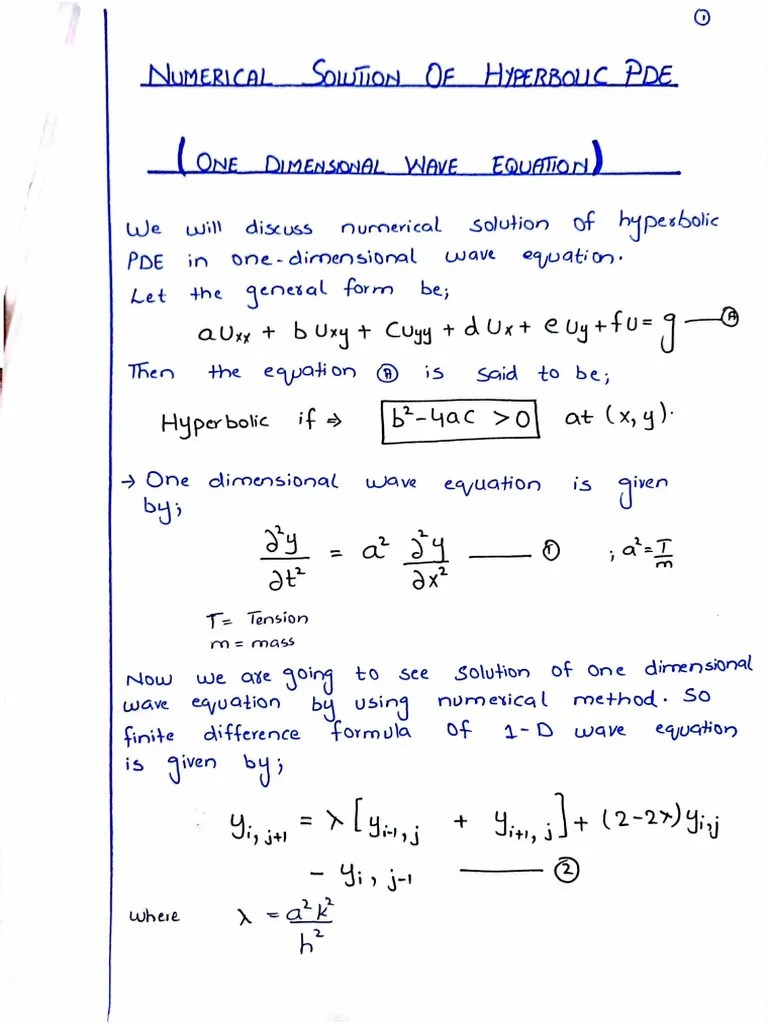 ①
NUMERICAL SOLUTION OF HYPERBOLIC PDE
(ONE DIMENSIONAL WAVE EQUATION)
We will discuss numerical solution of hyperbolic
PDE in one-dimensional wave equation.
Let the general form be;
a Uxx + b Uxy + c Uyy + d Ux + e Uy + f U = g —— Ⓐ
Then the equation Ⓐ is said to be;
Hyperbolic if ⇒ b² - 4ac > 0 at (x, y).
→ One dimensional wave equation is given
by;
∂²y/∂t² = a² ∂²y/∂x² —— ① ; a² = T/m
T = Tension
m = mass
Now we are going to see solution of one dimensional
wave equation by using numerical method. So
finite difference formula of 1-D wave equation
is given by;
y_{i, j+1} = λ [y_{i-1, j} + y_{i+1, j}] + (2-2λ) y_{i, j}
- y_{i, j-1} —— ②
where λ = a²k²/h²